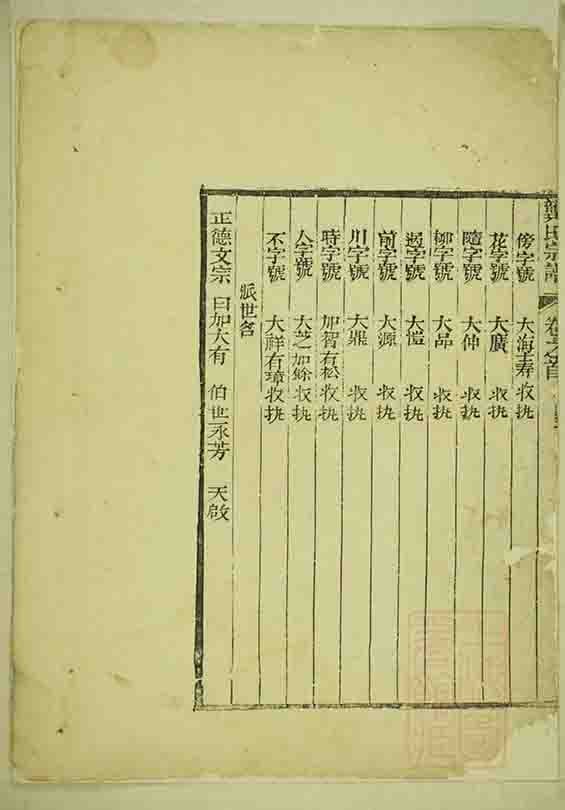 龔氏宗譜 卷之首
傍字號 大海玉寿收执
花字號 大廣 收执
隨字號 大仲 收执
柳字號 大昂 收执
過字號 大愷 收执
前字號 大源 收执
川字號 大鼎 收执
時字號 加智有松收执
人字號 大芝加餘收执
不字號 大祥有璋收执
派世含
正德文宗 曰加大有 伯世永芳 天啟